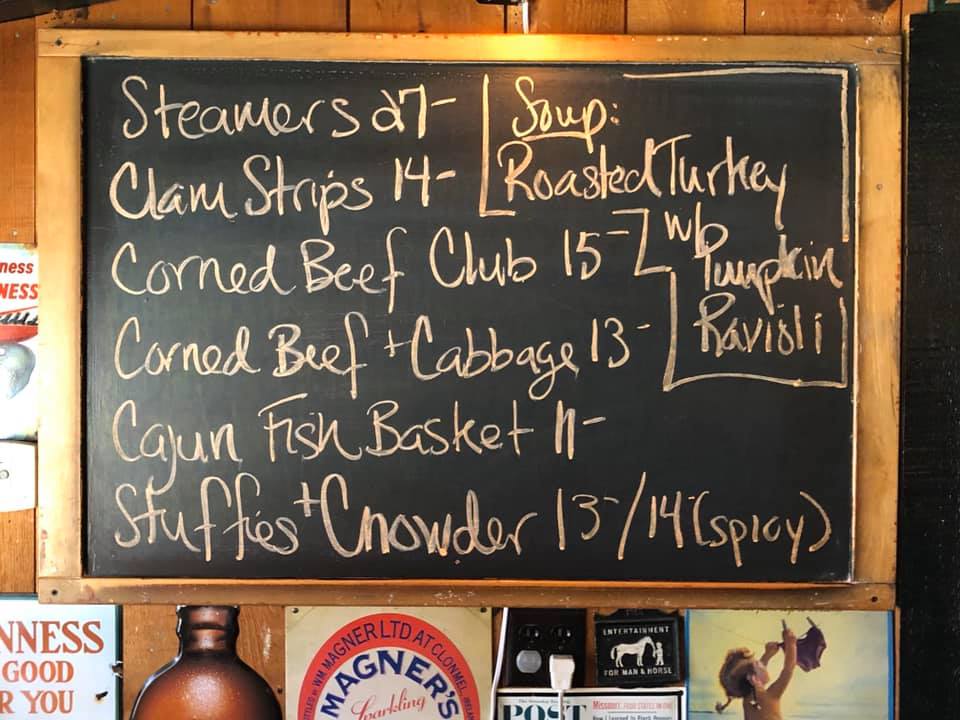 Steamers 27-
Clam Strips 14-
Corned Beef Club 15-
Corned Beef + Cabbage 13-
Cajun Fish Basket 11-
Stuffies + Chowder 13-/14-(spicy)
Soup:
Roasted Turkey
w/
Pumpkin
Ravioli
NESS
NESS
NNESS
GOOD
R YOU
WM. MAGNER LTD AT CLONMEL, IREL
MAGNER'S
Sparkling
ENTERTAINMENT
FOR MAN & HORSE
POST
MISSOURI, FOUR STATES IN ONE